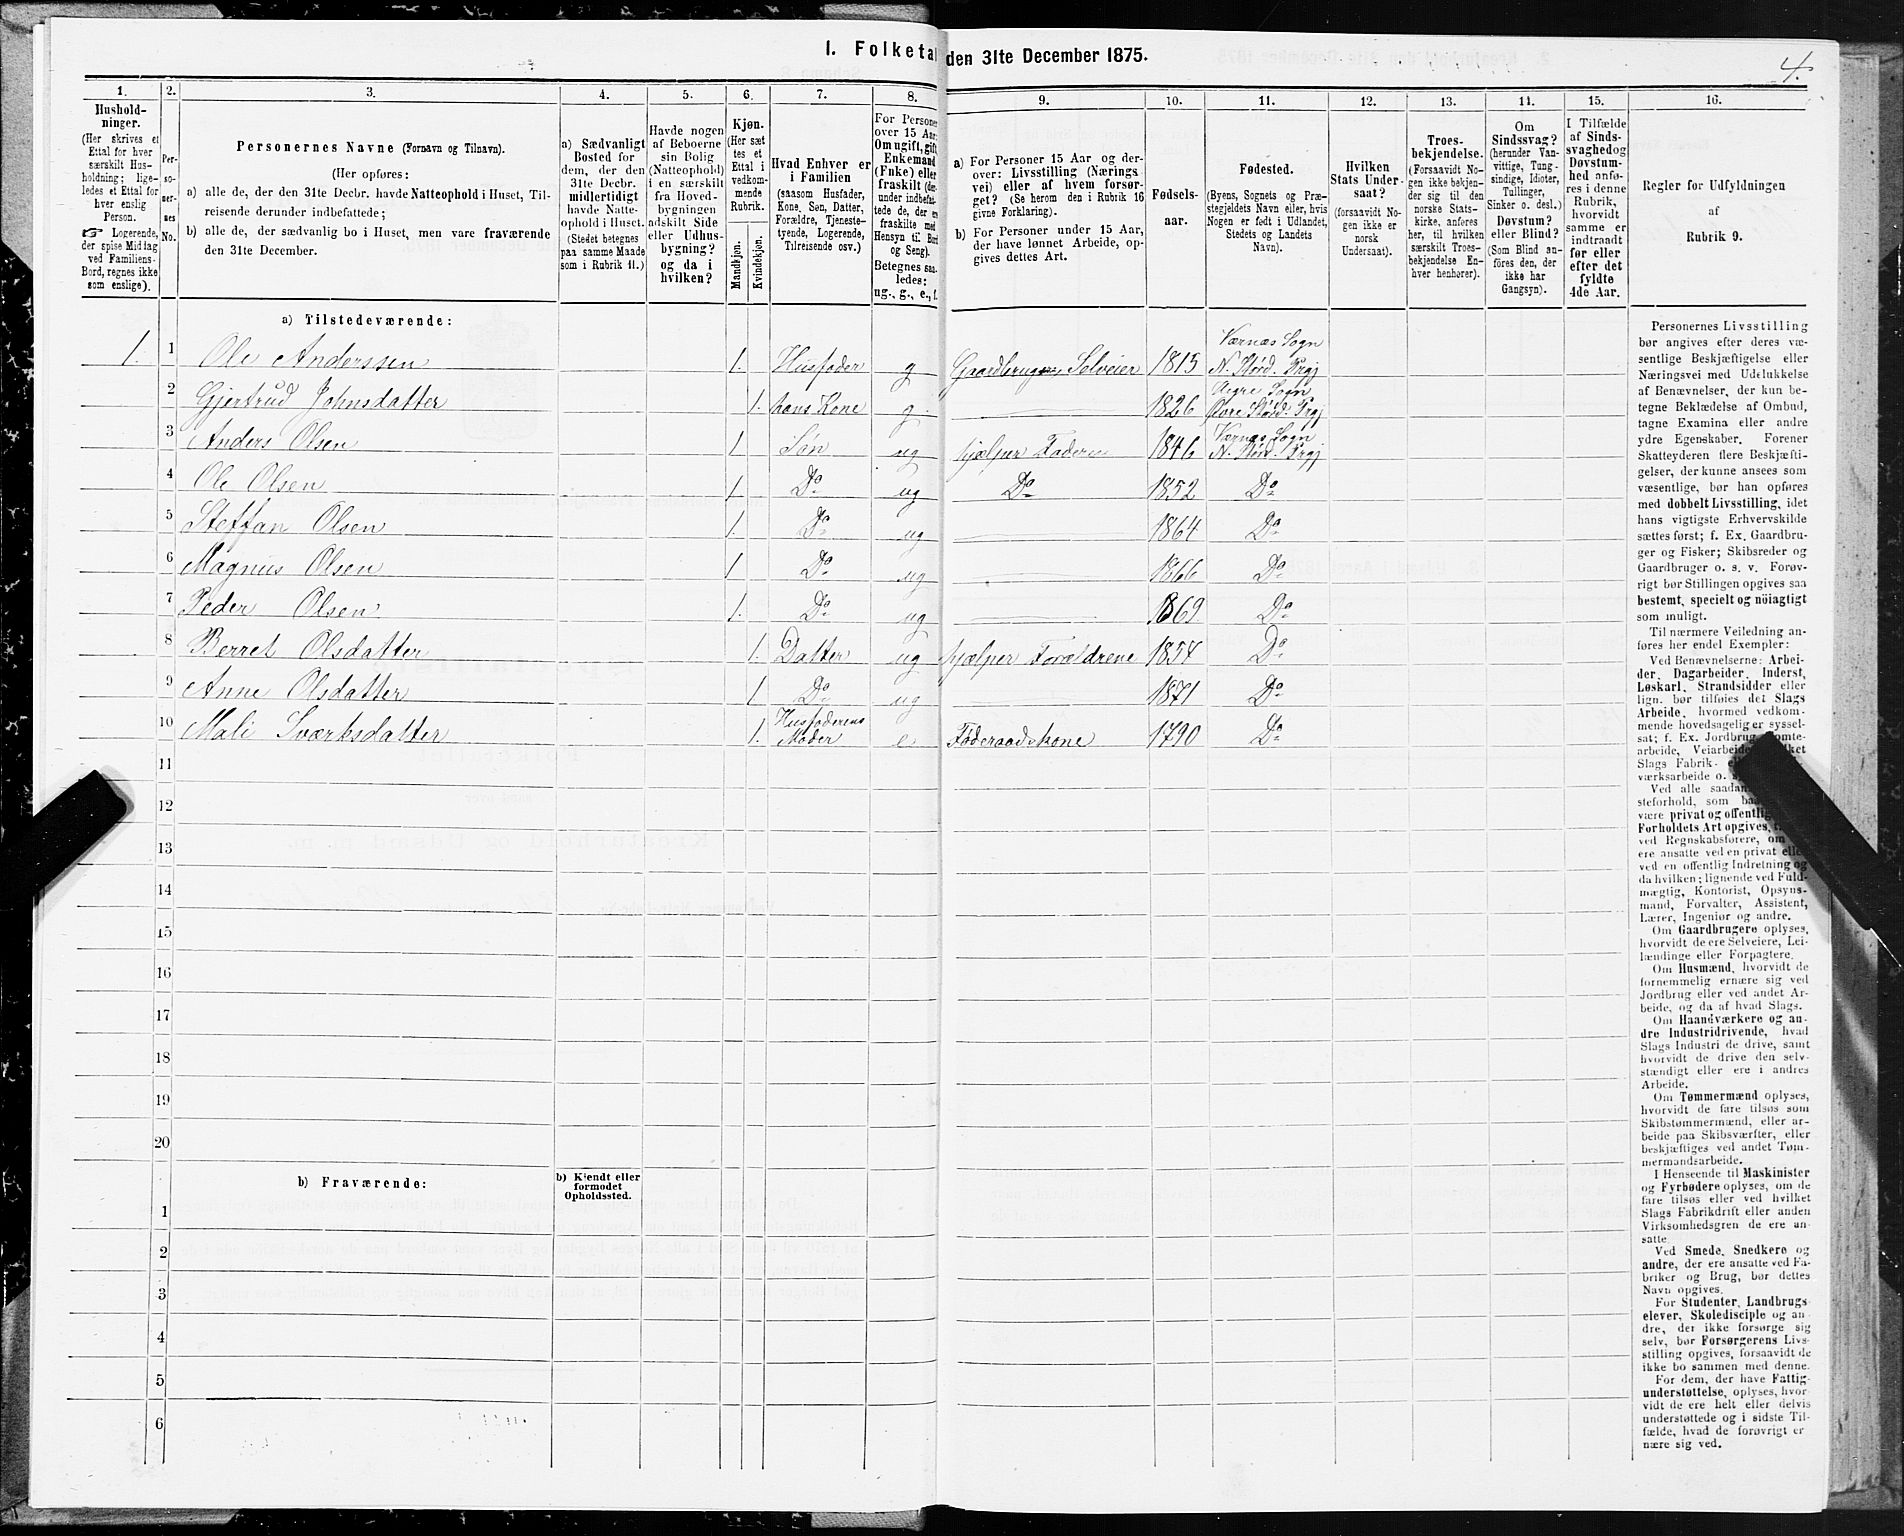 I. Folketal den 31te December 1875.
4.
1.
2.
3.
4.
5.
6.
7.
8.
9.
10.
11.
12.
13.
14.
15.
16.
Hushold-
ninger.
(Her skrives et
Ettal for hver
særskilt Hus-
holdning; lige-
ledes et Ettal for
hver enslig
Person.
Logerende,
der spise Middag
ved Familiens
Bord, regnes ikke
som enslige).
Per-
so-
ner-
nes
No.
Personernes Navne (Fornavn og Tilnavn).
(Her opføres:
a) alle de, der den 31te Decbr. havde Natteophold i Huset, Til-
reisende derunder indbefattede;
b) alle de, der sædvanlig bo i Huset, men vare fraværende
den 31te December.
a) Sædvanligt
Bosted for
dem, der den
31te Decbr.
midlertidigt
havde Natte-
ophold i Huset.
(Stedet betegnes
paa samme Maade
som i Rubrik 11.)
Havde nogen
af Beboerne
sin Bolig
(Natteophold)
i en særskilt
fra Hoved-
bygningen
adskilt Side
eller Udhus-
bygning?
og da i
hvilken?
Kjøn.
(Her sæt
tes et
Ettal i
vedkom-
mende
Rubrik.
Mandkjøn.
Kvindekjøn.
Hvad Enhver er
i Familien
(saasom Husfader,
Kone, Søn, Datter,
Forældre, Tjeneste-
tyende, Logerende,
Tilreisende osv.)
For Personer
over 15 Aar:
Om ugift, gift,
Enkemand
(Enke) eller
fraskilt (der-
under indbefat-
tede de, der ere
fraskilte med
Hensyn til Bord
og Seng).
Betegnes saa-
ledes:
ug., g., e., f.
a) For Personer 15 Aar og der-
over: Livsstilling (Nærings
vei) eller af hvem forsør-
get? (Se herom den i Rubrik 16
givne Forklaring).
b) For Personer under 15 Aar,
der have lønnet Arbeide, op-
gives dettes Art.
Fødsels-
aar.
Fødested.
(Byens, Sognets og Præ-
stegjeldets Navn eller, hvis
Nogen er født i Udlandet,
Stedets og Landets
Navn).
Hvilken
Stats Under-
saat?
(forsaavidt No-
gen ikke er
norsk
Undersaat).
Troes-
bekjendelse.
(Forsaavidt No-
gen ikke bekjen-
der sig til den
norske Stats-
kirke, anføres
her, til hvilken
særskilt Troes-
bekjendelse En-
hver henhører).
Om
Sindssvag?
(herunder Van-
vittige, Tung-
sindige, Idioter,
Tullinger,
Sinker o. desl.)
Døvstum?
eller Blind?
(Som Blind an-
føres den, der
ikke har
Gangsyn).
I Tilfælde
af Sinds-
svaghed og
Døvstum-
hed anfø-
res i denne
Rubrik,
hvorvidt
samme er
indtraadt
før eller
efter det
fyldte
4de Aar.
Regler for Udfyldningen
af
Rubrik 9.
a) Tilstedeværende:
1. 1 Ole Anderssen 1. Husfader g Gaardbruger Selveier 1815 Værnes Sogn N. Stjørd. Prgj
2 Gjertrud Johnsdatter 1. hans Kone g. 1826 Sogn Stjørd. Prgj
3 Anders Olsen 1 Søn ug hjælper Faderen 1846 Værnes Sogn N. Stjørd. Prgj
4 Ole Olsen 1 Do ug Do 1852 Do
5 Steffan Olsen 1. Do ug 1864 Do
6 Magnus Olsen 1 Do ug 1866 Do
7 Peder Olsen 1. Do ug 1869 Do
8 Berret Olsdatter 1. Datter ug hjælper Forældrene 1854 Do
9 Anne Olsdatter 1 Do ug 1871 Do
10 Mali Sværksdatter 1. Husfaderens Moder e Føderaadskone 1790 Do
11
12
13
14
15
16
17
18
19
20
b) Fraværende:
b) Kjendt eller
formodet
Opholdssted.
1
2
3
4
5
6
Personernes Livsstilling
bør angives efter deres væ-
sentlige Beskjæftigelse eller
Næringsvei med Udelukkelse
af Benævnelser, der kun be-
tegne Beklædelse af Ombud,
tagne Examina eller andre
ydre Egenskaber. Forener
Skatteyderen flere Beskjæfti-
gelser, der kunne ansees som
væsentlige, bør han opføres
med dobbelt Livsstilling, idet
hans vigtigste Erhvervskilde
sættes først; f. Ex. Gaardbru-
ger og Fisker; Skibsreder og
Gaardbruger o. s. v. Forøv-
rigt bør Stillingen opgives saa
bestemt, specielt og nöiagtigt
som muligt.
Til nærmere Veiledning an-
føres her endel Exempler:
Ved Benævnelserne: Arbei-
der, Dagarbeider, Inderst,
Løskarl, Strandsidder eller
lign. bør tilføies det Slags
Arbeide, hvormed vedkom-
mende hovedsagelig er syssel-
sat; f. Ex. Jordbrug, omte-
arbeide, Veiarbeide, ket
Slags Fabrik-
værksarbeide o.
Ved alle saadan
steforhold, som
være privat og offentlig
Forholdets Art opgives,
ved Regnskabsførere, om
ere ansatte ved en privat eller
ved en offentlig Indretning og
da hvilken; lignende ved Fuld-
mægtig, Kontorist, Opsyns-
mand, Forvalter, Assistent,
Lærer, Ingeniør og andre.
Om Gaardbrugere oplyses,
hvorvidt de ere Selveiere, Lei-
lændinge eller Forpagtere.
Om Husmænd, hvorvidt de
fornemmelig ernære sig ved
Jordbrug eller ved andet Ar-
beide, og da af hvad Slags.
Om Haandværkere og an-
dre Industridrivende, hvad
Slags Industri de drive, samt
hvorvidt de drive den selv-
stændigt eller ere i andres
Arbeide.
Om Tømmermænd oplyses,
hvorvidt de fare tilsøs som
Skibstømmermænd, eller ar-
beide paa Skibsværfter, eller
beskjæftiges ved andet Tøm-
mermandsarbeide.
I Henseende til Maskinister
og Fyrbødere oplyses, om de
fare tilsøs eller ved hvilket
Slags Fabrikdrift eller anden
Virksomhedsgren de ere an-
satte.
Ved Smede, Snedkere og
andre, der ere ansatte ved Fa-
briker og Brug, bør dettes
Navn opgives.
For Studenter, Landbrugs-
elever, Skoledisciple og an-
dre, der ikke forsørge sig
selv, bør Forsørgerens Livs-
stilling opgives, forsaavidt de
ikke bo sammen med denne.
For dem, der have Fattig-
understøttelse, oplyses, hvor-
vidt de ere helt eller delvis
understøttede og i sidste Til-
fælde, hvad de forøvrigt er
nære sig ved.